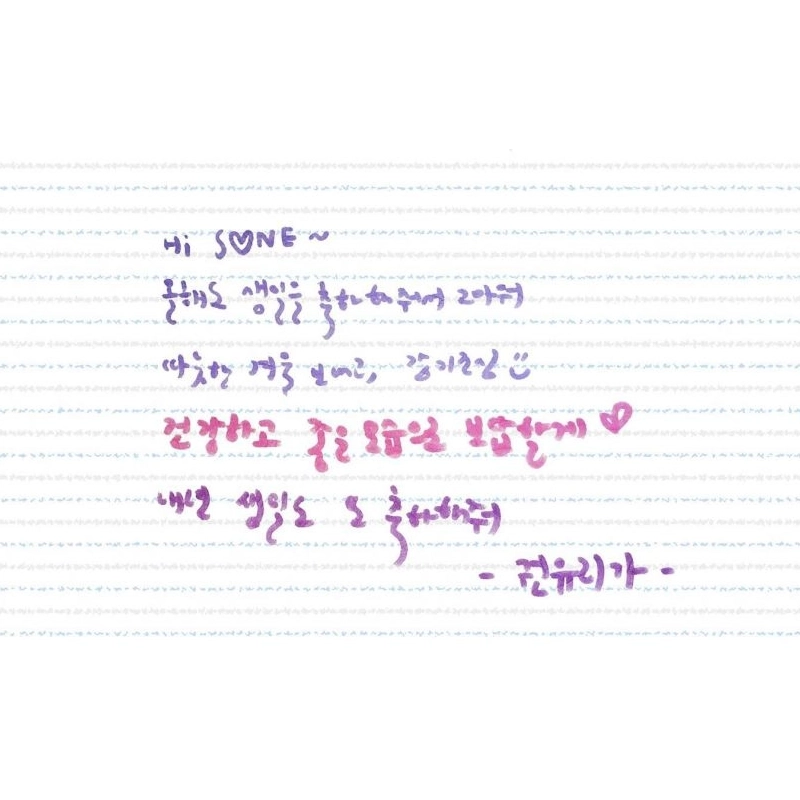 Hi S♡NE ~
올해도 생일을 축하해주어 고마워
따뜻한 겨울 보내고, 감기조심 ☺
건강하고 좋은 모습으로 보답할게 ♡
내년 생일도 또 축하해줘
- 권유리가 -